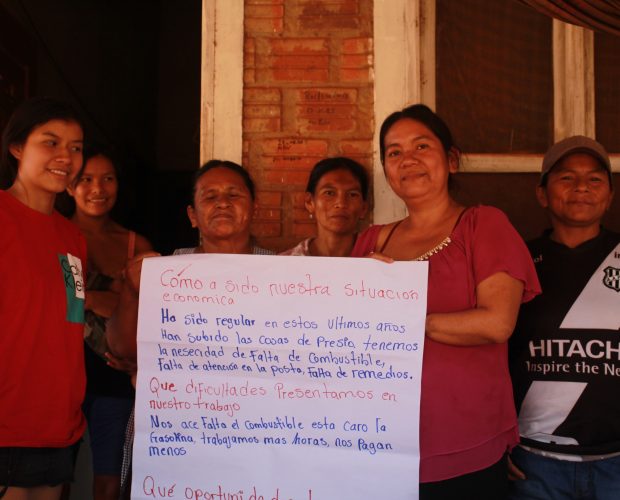 Cómo a sido nuestra situación
economica
Ha sido regular en estos ultimos años
Han subido las cosas de Presio, tenemos
la nesecidad de Falta de combustible,
Falta de atención en la posta, Falta de remedios.
Que dificultades Presentamos en
nuestro trabajo
Nos ace Falta el combustible esta caro la
Gasolina, trabajamos mas horas, nos Pagan
menos
HITACHI
Inspire the Ne